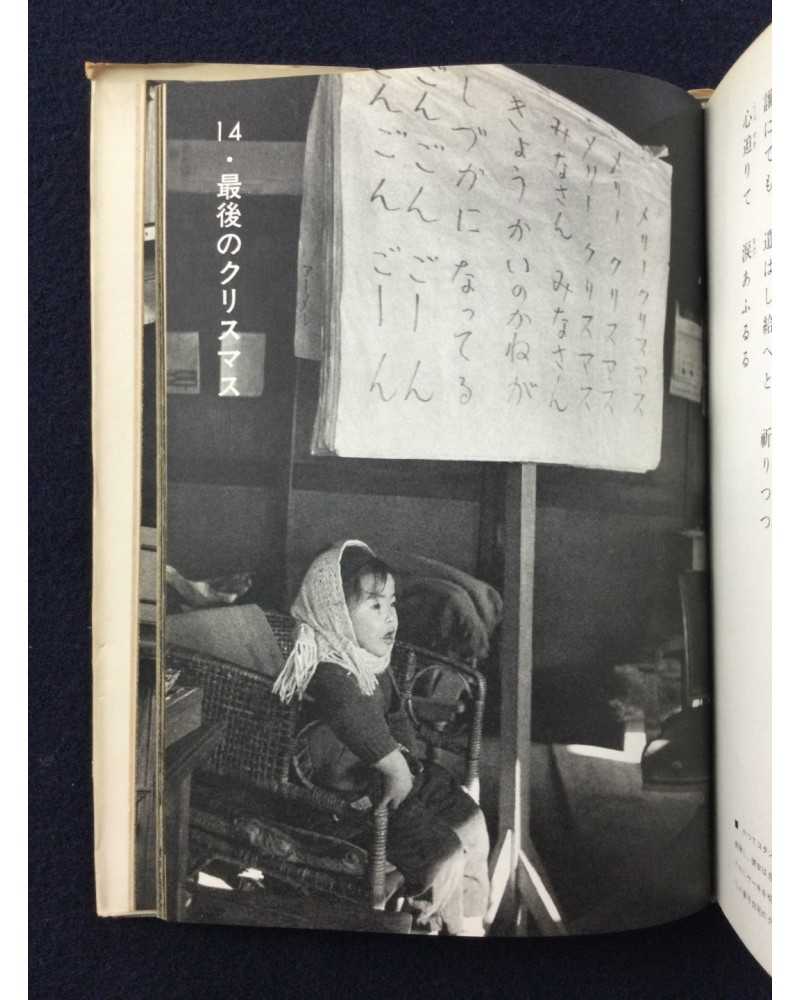 誰にても　遣はし給へと　祈りつつ
心迫りて　涙あふるる
メリークリスマス
メリー　クリスマス
メリー　クリスマス
みなさん　みなさん
きょうかいのかねが
しづかに　なってる
ごんごん　ごーん
ごんごん　ごーん
14・最後のクリスマス